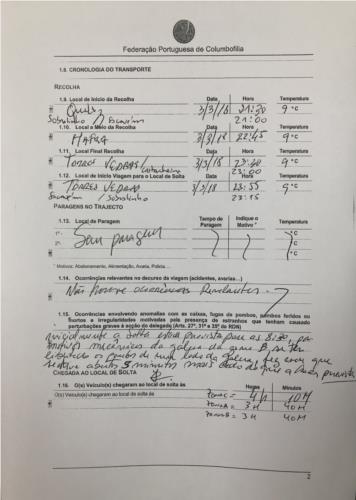 Federação Portuguesa de Columbofilia
1.8. CRONOLOGIA DO TRANSPORTE
RECOLHA
1.9. Local de Início da Recolha Data Hora Temperatura
3/3/18 21:30 9 °C
Sobralinho / 21:00
1.10. Local a Meio da Recolha Data Hora Temperatura
MAFRA 3/3/18 22:45 9 °C
1.11. Local Final Recolha Data Hora Temperatura
TORRES VEDRAS / 3/3/18 9 °C
23:00
1.12. Local de Início Viagem para o Local de Solta Data Hora Temperatura
TORRES VEDRAS 3/3/18 23:55 9 °C
/ Sobralinho 23:15
PARAGENS NO TRAJECTO
1.13. Local de Paragem Tempo de Paragem Indique o Motivo * Temperatura
1ª-
2ª-
Sem paragem
* Motivos: Abeberamento, Alimentação, Avaria, Polícia...
1.14. Ocorrências relevantes no decurso da viagem (acidentes, avarias...)
Não houve ocorrências Relevantes
1.15. Ocorrências envolvendo anomalias com as caixas, fugas de pombos, pombos feridos ou mortos e irregularidades motivadas pela presença de estranhos que tenham causado perturbações graves à acção do delegado (Arts. 27º, 31º e 35º do RDN)
inicialmente a solta estava prevista para as 8:30, por
motivos mecânicos da galera da zona B, só ter
os pombos de um lado da galera, fez com que
5 minutos mais cedo do que a hora prevista
CHEGADA AO LOCAL DE SOLTA
1.16. O(s) Veículo(s) chegaram ao local de solta às Horas Minutos
O(s) Veículo(s) chegaram ao local de solta às
ZONA C = 4 H 10 M
ZONA A = 3 H 40 M
ZONA B = 3 H 40 M
2